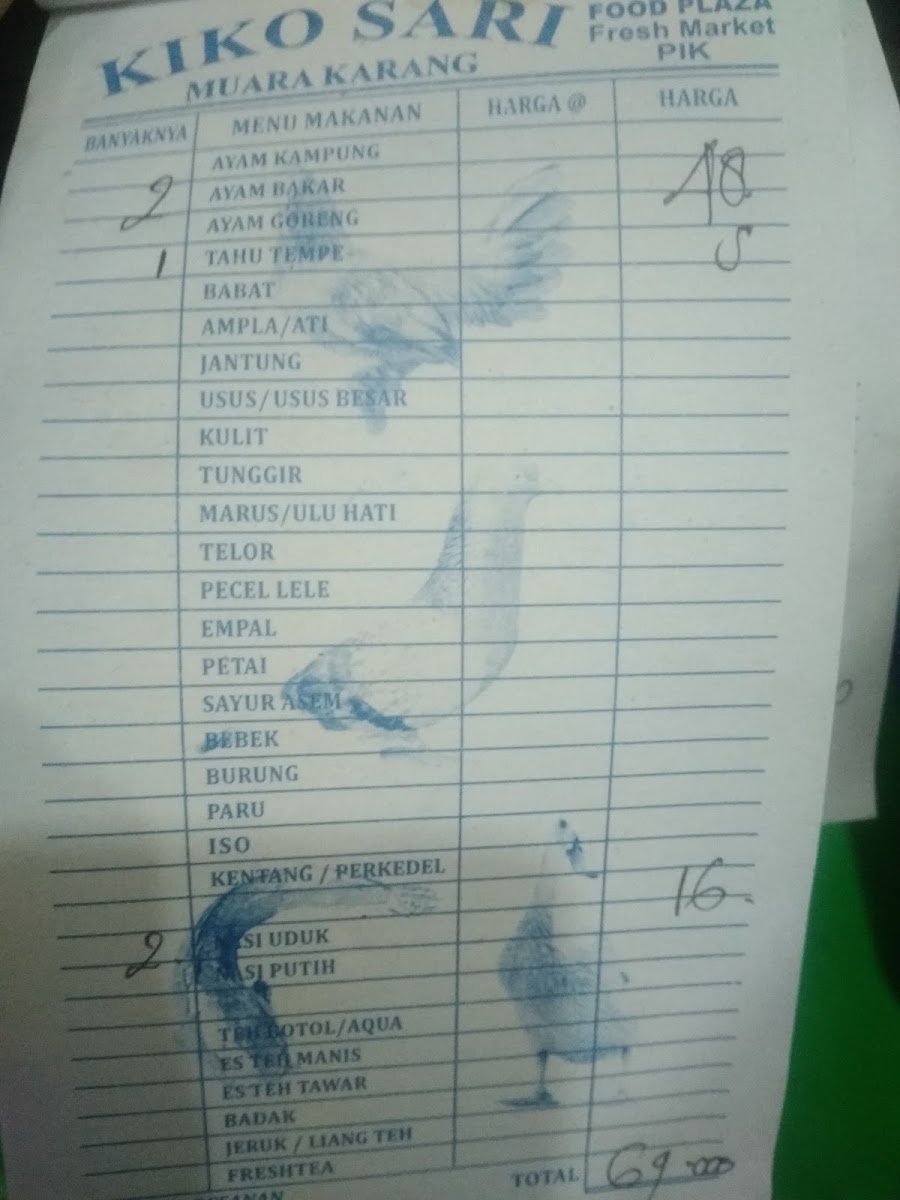 KIKO SARI
FOOD PLAZA
Fresh Market
PIK
MUARA KARANG
BANYAKNYA MENU MAKANAN HARGA @ HARGA
AYAM KAMPUNG
2 AYAM BAKAR 48
AYAM GORENG
1 TAHU TEMPE 5
BABAT
AMPLA/ATI
JANTUNG
USUS/USUS BESAR
KULIT
TUNGGIR
MARUS/ULU HATI
TELOR
PECEL LELE
EMPAL
PETAI
SAYUR ASEM
BEBEK
BURUNG
PARU
ISO
KENTANG / PERKEDEL
16.
2 NASI UDUK
NASI PUTIH
TEH BOTOL/AQUA
ES TEH MANIS
ES TEH TAWAR
BADAK
JERUK / LIANG TEH
FRESHTEA
TOTAL 69.000